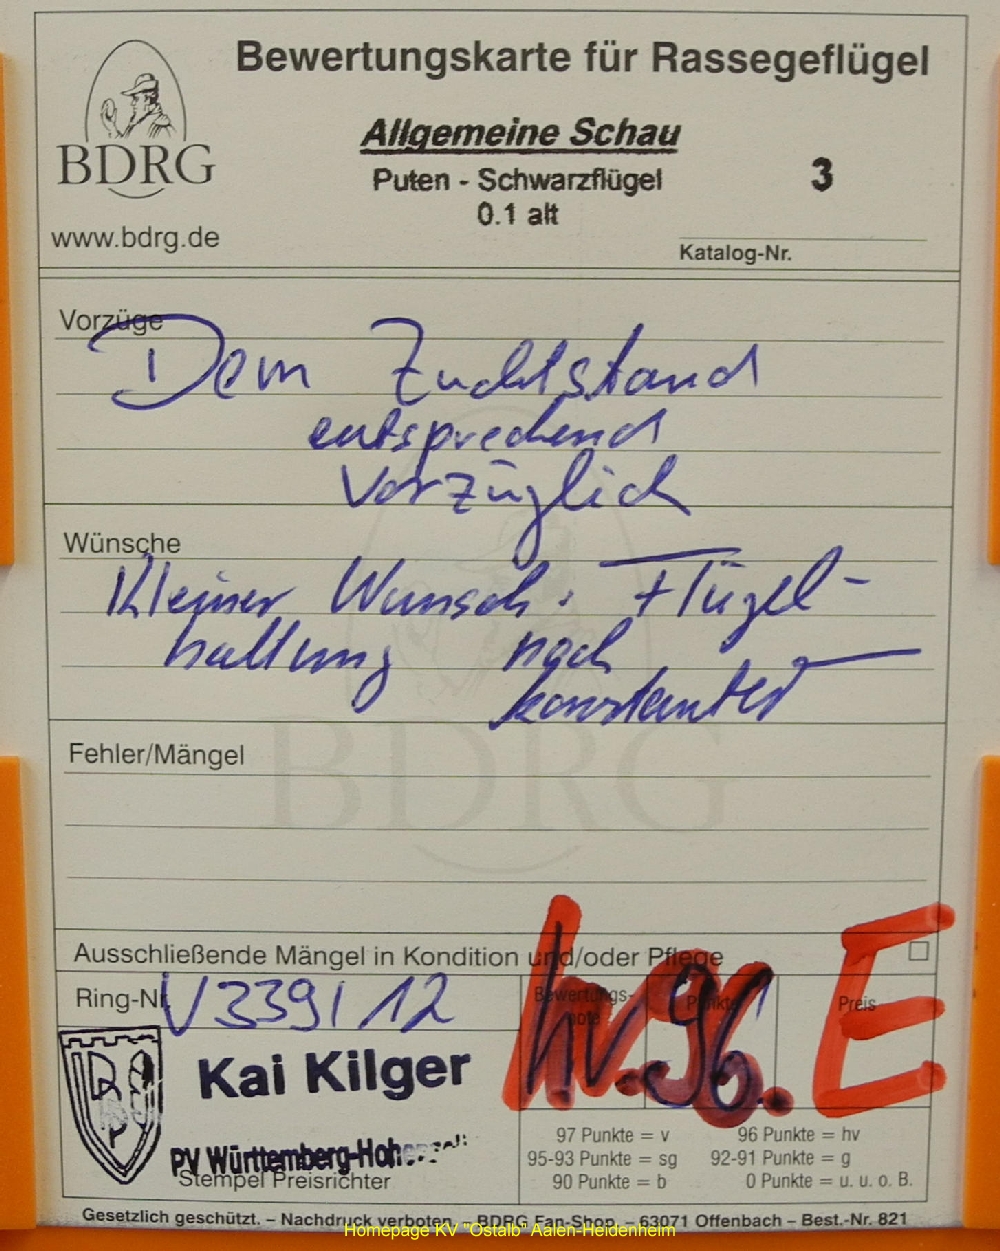 Bewertungskarte für Rassegeflügel
BDRG
www.bdrg.de
Allgemeine Schau
Puten - Schwarzflügel
0.1 alt
3
Katalog-Nr.
Vorzüge
Dem Zuchtstand
entsprechend
Vorzüglich
Wünsche
Kleiner Wunsch: Flügel-
haltung noch
konstanter
BDRG
Fehler/Mängel
Ausschließende Mängel in Kondition und/oder Pflege
Ring-Nr. V3391 12
Bewertungs-
note
Punkte
Preis
hv. 96. E
Kai Kilger
PV Württemberg-
Stempel Preisrichter
97 Punkte = v 96 Punkte = hv
95-93 Punkte = sg 92-91 Punkte = g
90 Punkte = b 0 Punkte = u. u. o. B.
Gesetzlich geschützt. – Nachdruck verboten. – BDRG Fan-Shop. – 63071 Offenbach – Best.-Nr. 821
Homepage KV "Ostalb" Aalen-Heidenheim